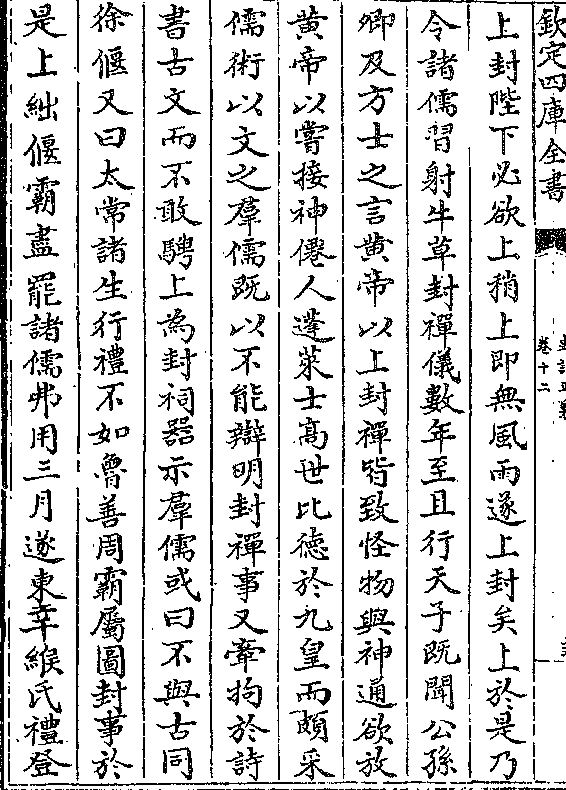 欽定四庫全書
卷十二
上封陛下必欲上稍上即無風雨遂上封矣上於是乃
令諸儒習射牛草封禪儀數年至且行天子既聞公孫
卿及方士之言黄帝以上封禪皆致怪物與神通欲放
黄帝以嘗接神僊人蓬萊士高世比德於九皇而頗采
儒術以文之羣儒既以不能辯明封禪事又牽拘於詩
書古文而不敢騁上為封祠器示羣儒或曰不與古同
徐偃又曰太常諸生行禮不如魯善周霸屬圖封事於
是上絀偃霸盡罷諸儒弗用三月遂東幸緱氏禮登